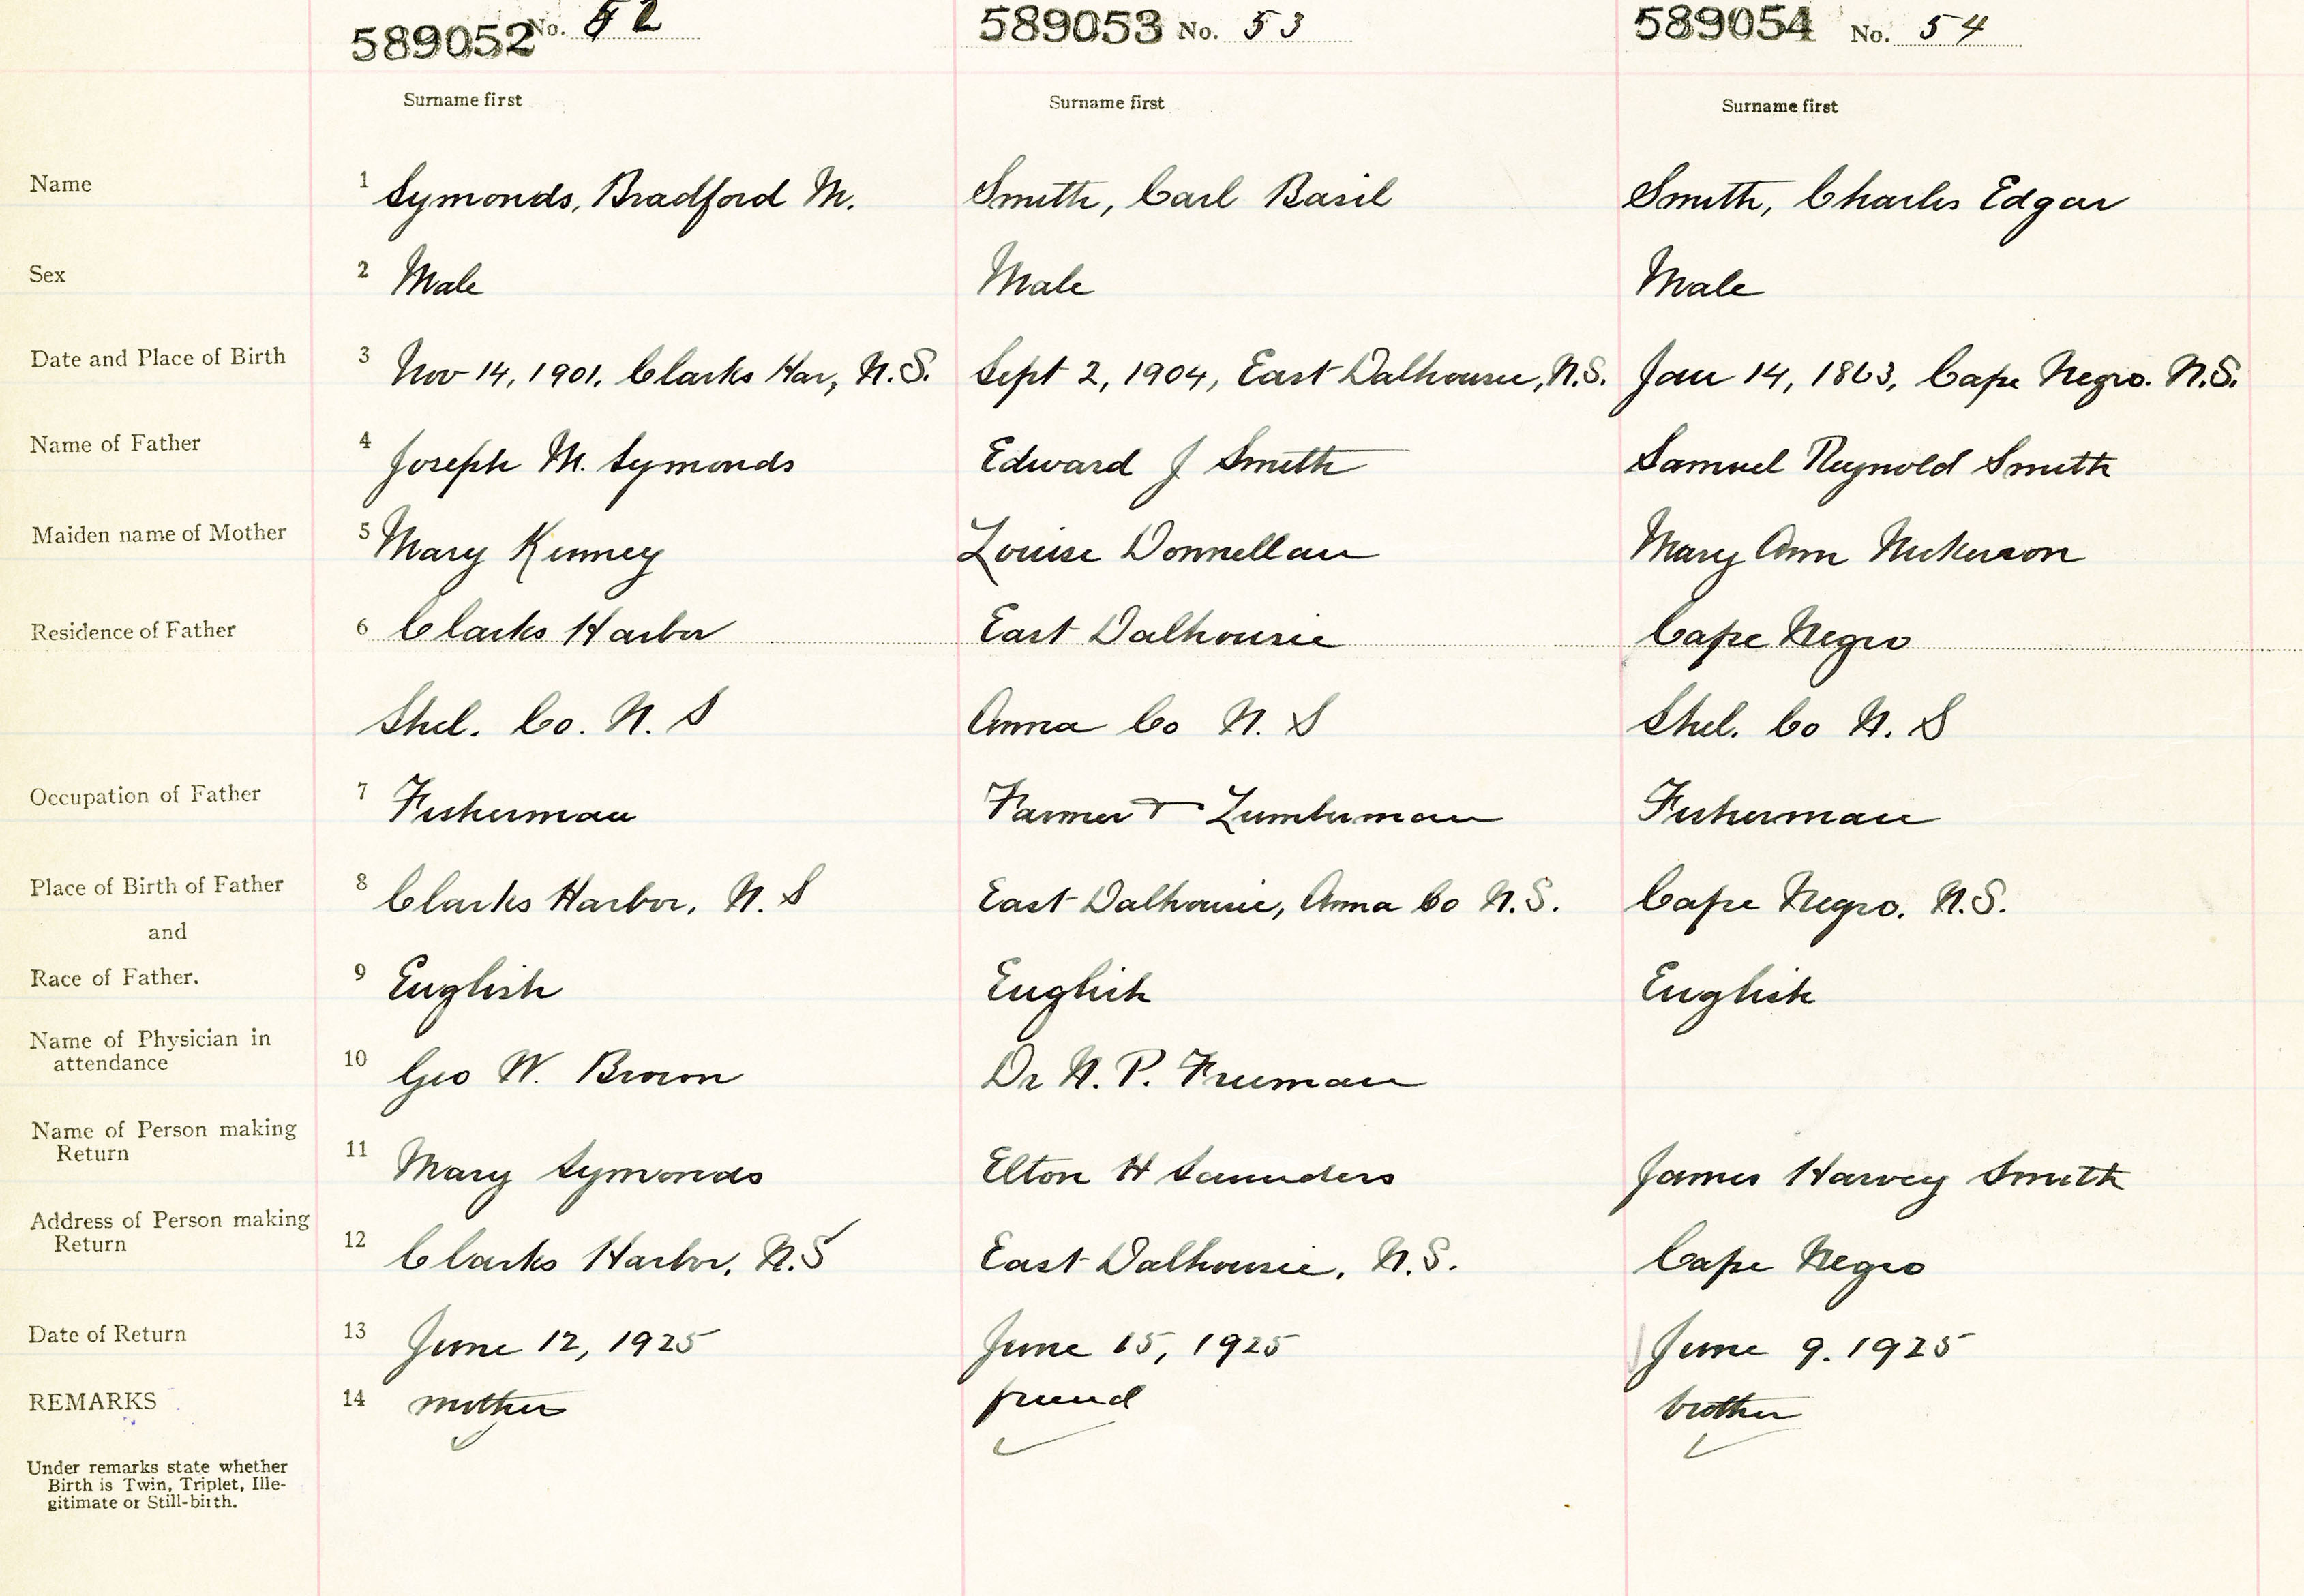 589052 No. 52 589053 No. 53 589054 No. 54
Surname first Surname first Surname first
Name 1 Symonds, Bradford M. Smith, Carl Basil Smith, Charles Edgar
Sex 2 Male Male Male
Date and Place of Birth 3 Nov 14, 1901. Clarks Har, N.S. Sept 2, 1904, East Dalhousie, N.S. Jan 14, 1863, Cape Negro. N.S.
Name of Father 4 Joseph M. Symonds Edward J Smith Samuel Reynold Smith
Maiden name of Mother 5 Mary Kenney Louise Donnellan Mary Ann Nickerson
Residence of Father 6 Clarks Harbor East Dalhousie Cape Negro
Shel. Co. N. S Anna Co N. S Shel. Co N. S
Occupation of Father 7 Fisherman Farmer & Lumberman Fisherman
Place of Birth of Father 8 Clarks Harbor, N. S East Dalhousie, Anna Co N.S. Cape Negro. N.S.
and
Race of Father. 9 English English English
Name of Physician in
attendance 10 Geo W. Brown Dr N. P. Freeman
Name of Person making
Return 11 Mary Symonds Elton H Saunders James Harvey Smith
Address of Person making
Return 12 Clarks Harbor, N.S East Dalhousie, N.S. Cape Negro
Date of Return 13 June 12, 1925 June 15, 1925 June 9. 1925
REMARKS 14 mother friend brother
Under remarks state whether
Birth is Twin, Triplet, Ille-
gitimate or Still-birth.